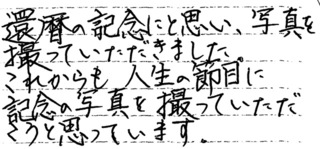 還暦の記念にと思い、写真を
撮っていただきました。
これからも人生の節目に
記念の写真を撮っていただ
こうと思っています。